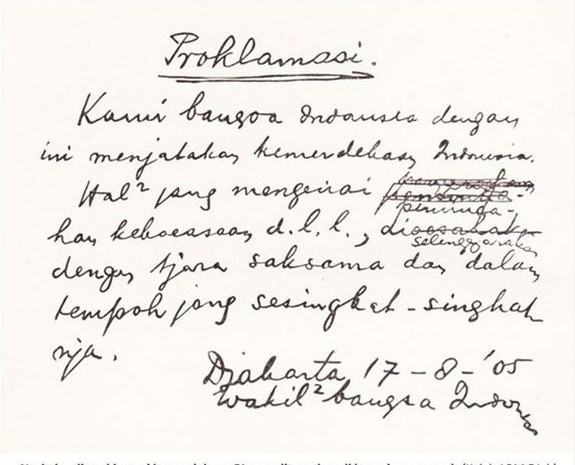 Proklamasi.
Kami bangsa Indonesia dengan
ini menjatakan kemerdekaan Indonesia.
Hal² jang mengenai
peminda-
han keboeasaan d.l.l.,
selenggarakan
dengan tjara saksama dan dalam
tempoh jang sesingkat-singkat
nja.
Djakarta 17-8-'05
Wakil² bangsa Indones